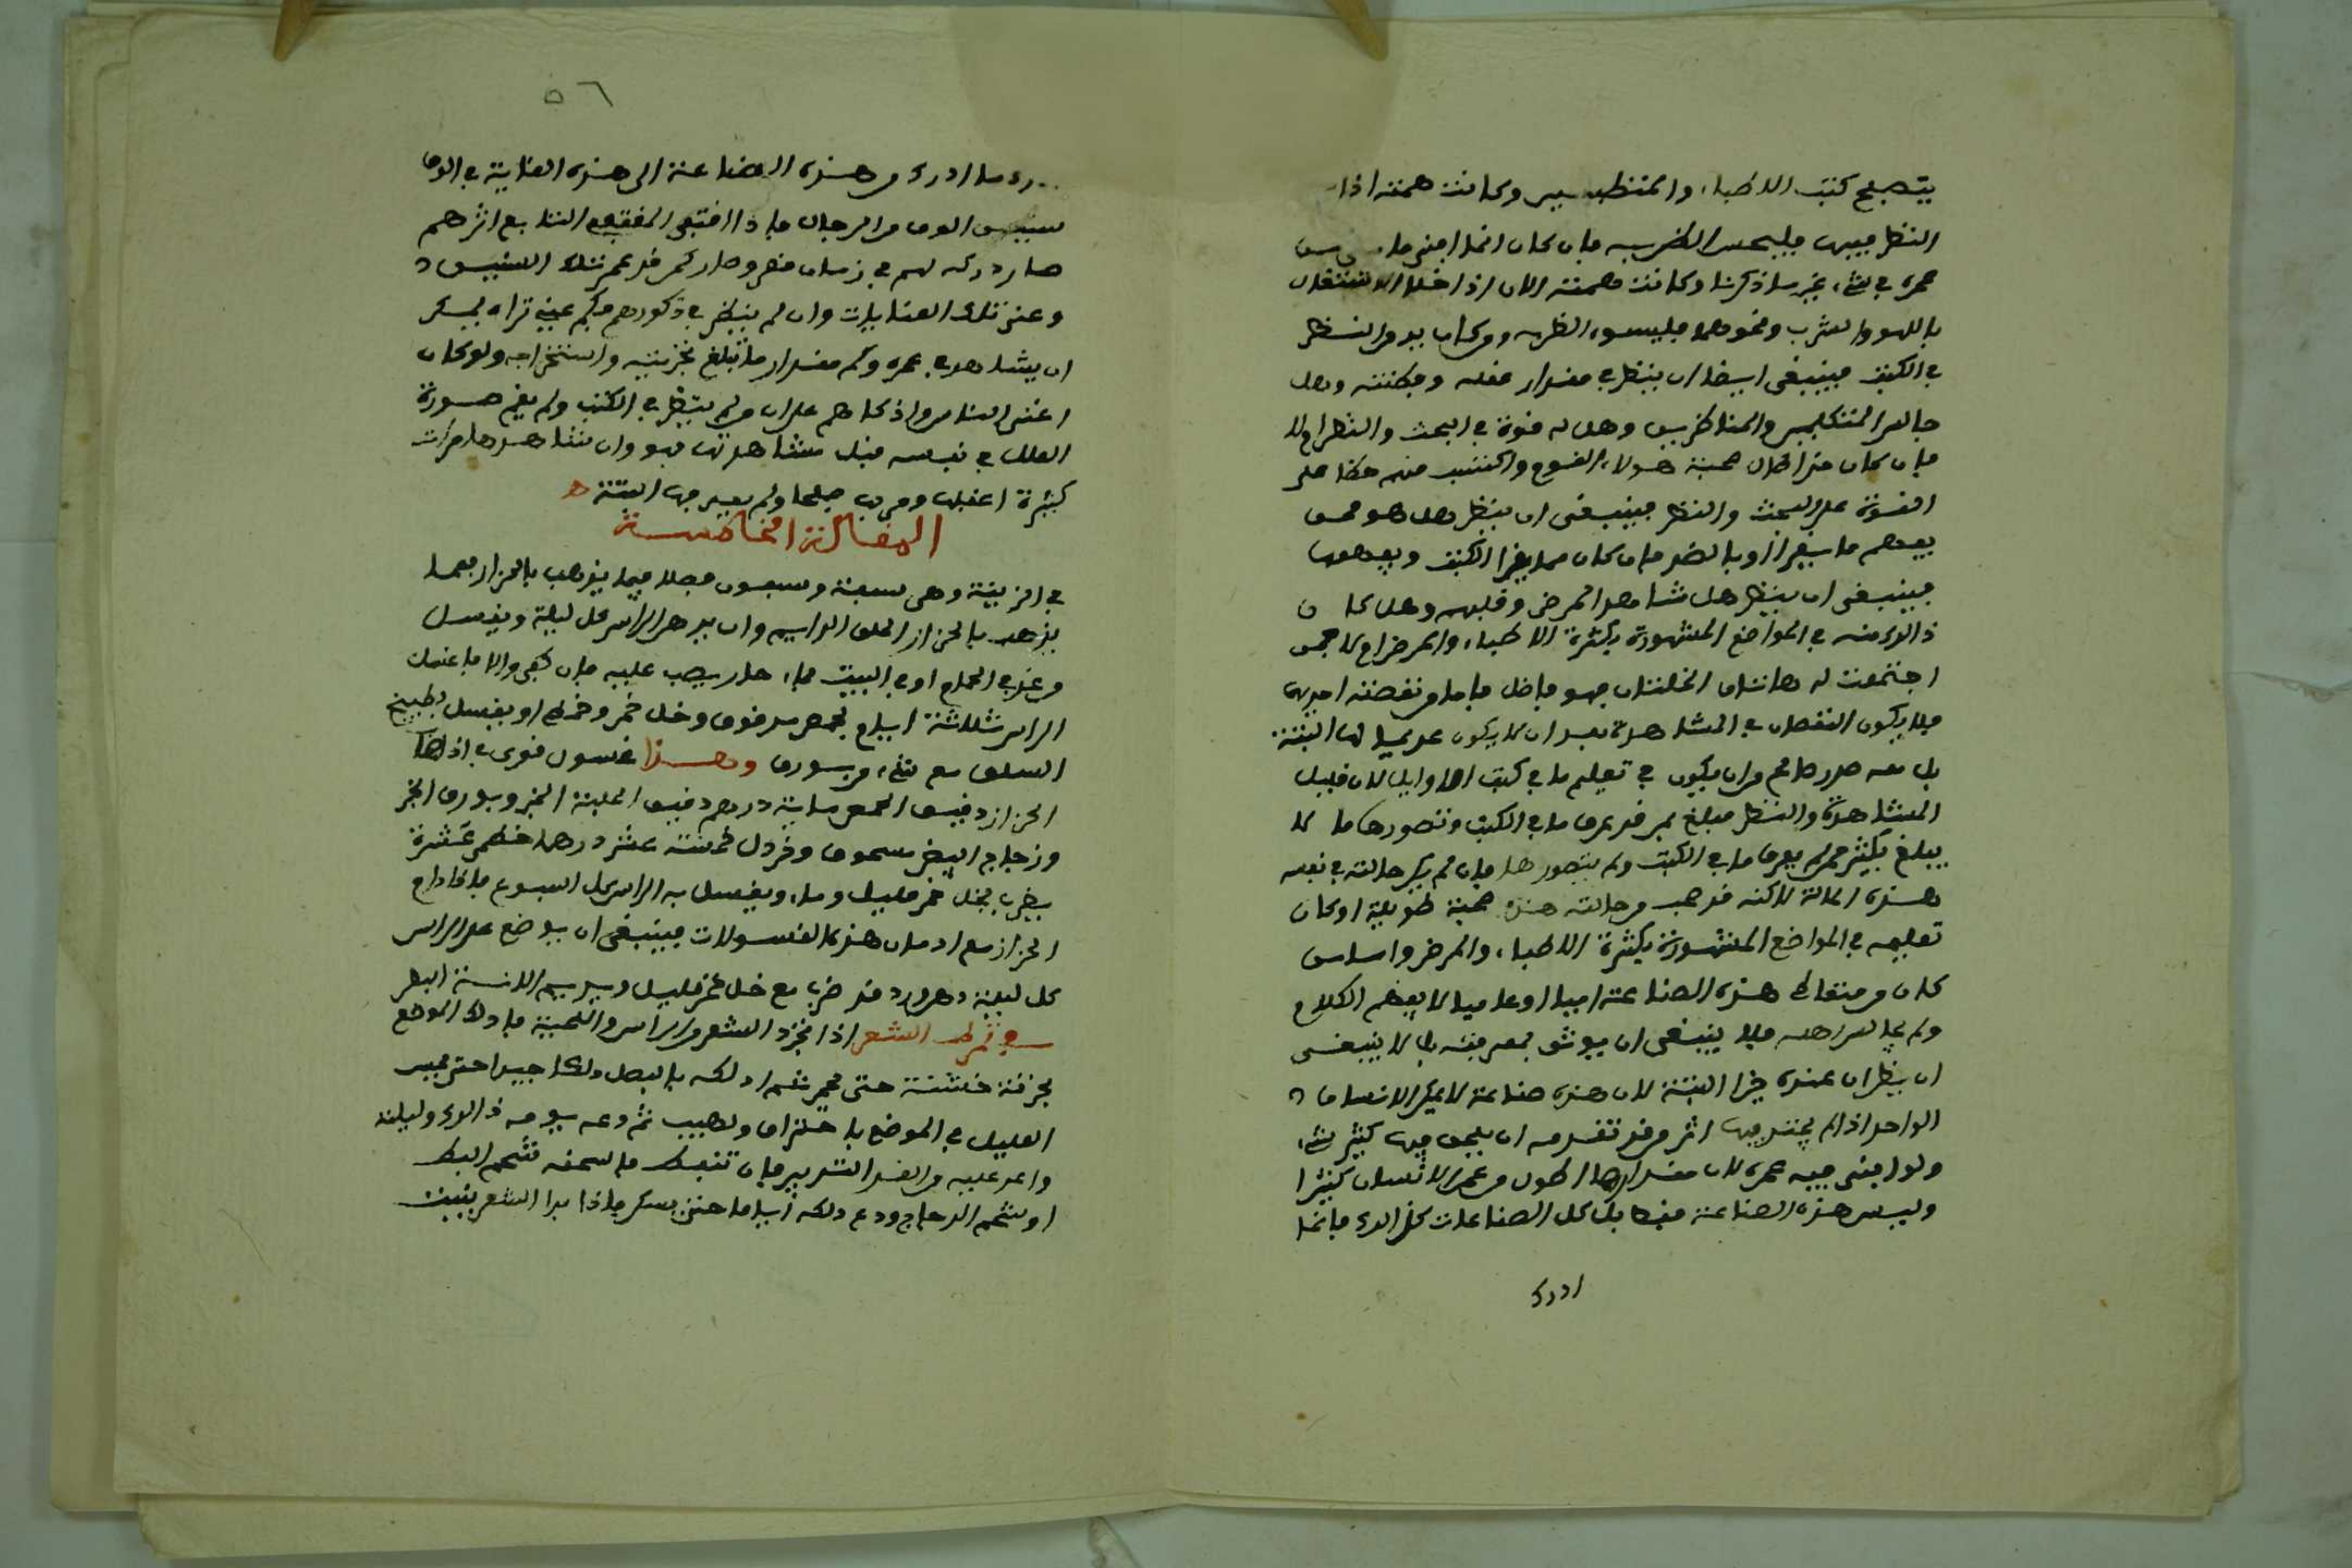 يتصفح كتب الاطباء والمتطببين وكانت همته اذا
النظر فيها فليحسن الظن به فان كان انما افنى ما
عمره في شيء غير ما ذكرنا وكانت همته الان اذا خلا الاشتغال
باللهو والشرب ونحوهما فليسوء الظن به ومن كان يدمن النظر
في الكتب فينبغي ايضا ان ينظر في مقدار عقله وفطنته وهل
جالس المتكلمين والمناظرين وهل له قوة في البحث والنظر ام لا
فان كان قد اطال صحبة هولاء القوم واكتسب منهم حظا على
القوة على البحث والنظر فينبغي ان ينظر هل هو ممن
يفهم ما يقرا او بالضد فان كان مما يقرا الكتب ويفهمها
فينبغي ان ينظر هل شاهد المرضى وقلبهم وهل كان
ذالك منه في المواضع المشهورة بكثرة الاطباء والمرضى ام لا فمن
اجتمعت له هاتان الخلتان فهو فاضل فاما من نقصته احديهما
فلا يكون النقصان في المشاهدة بعد ان لا يكون عديما لها البتة
بل معه صدر صالح من ان يكون في تعليم ما في كتب الاوايل لان قليل
المشاهدة والنظر مبلغ بمن قد عرف ما في الكتب وتصورها ما لا
يبلغ بكثير ممن لم يعرف ما في الكتب ولم يتصورها فان لم يكن حالته في نفسه
هذه الحالة لاكنه قد صحب من حالته هذه صحبة طويلة او كان
تعليمه في المواضع المشهورة بكثرة الاطباء والمرضى واما من
كان من متعاطي هذه الصناعة اميا او عاميا لا يفهم الكلام
ولم يجالس اهله فلا ينبغي ان يوثق بمعرفته بل لا ينبغي
ان يظن ان عنده خيرا البتة لان هذه صناعة لا يمكن الانسان
الواحد اذا لم يحتذ فيها اثر من قد تقدمه ان يلحق فيها كثير شيء
ولو افنى فيه عمره لان مقدارها اطول من عمر الانسان كثيرا
وليس هذه الصناعة فقط بل كل الصناعات كذالك فانما
ادرك
ادرك من هذه الصناعة الى هذه الغاية في الوف
سنين الوف من الرجال فاذا اقتفى المقتفي التابع اثرهم
صار دركه لهم في زمان قصير وصار كمن قد عمر تلك السنين
وعنى تلك العنايات وان لم ينظر في ذكورهم فكم عسى تراه يمكن
ان يشاهد في عمره وكم مقدار ما تبلغ تجربته واستخراجه ولو كان
اعنى الناس واذكاهم على ان من لم ينظر في الكتب ولم يفهم صورة
العلل في نفسه قبل مشاهدتها فهو وان شاهدها مرات
كثيرة اغفلها ومر بها صفحا ولم يعرفها البتة
المقالة الخامسة
في الزينة وهي سبعة وسبعون فصلا فيما يذهب بالحزاز مما
يذهب بالحزاز الحلق الدايم وان يدهن الراس كل ليلة ويغسل
من غد في الحمام او في البيت بماء حار يصب عليه فان كفى والا فاغسل
الراس ثلاثة ايام بحمص مدقوق وخل خمر وخطمي او يغسل بطبيخ
السلق مع شيء من بورق وهذا غسول قوي في اذهاب
الحزاز دقيق الحمص ماية درهم دقيق الحلبة الخبز وبورق الخبز
وزجاج ابيض مسحوق وخردل خمسة عشر درهما خطمي عشرة
يضرب بخل خمر قليل وماء ويغسل به الراس كل اسبوع فاذا دام
الحزاز مع ادمان هذه الغسولات فينبغي ان يوضع على الراس
كل ليلة دهن ورد قد ضرب مع خل خمر قليل
في تمرط الشعر اذا تجرد الشعر من الراس واللحية فادلك الموضع
بخرقة خشنة حتى يحمر ثم ادلكه بالبصل دلكا جيدا حتى يحس
العليل في الموضع باحتراق ولهيب ثم دعه يومه ذالك وليلته
واعد عليه من الغد التدبير فان تنفط فامسحه بشحم البط
او شحم الدجاج ودع دلكه اياما حتى يسكن فاذا بدا الشعر ينبت
٥٦